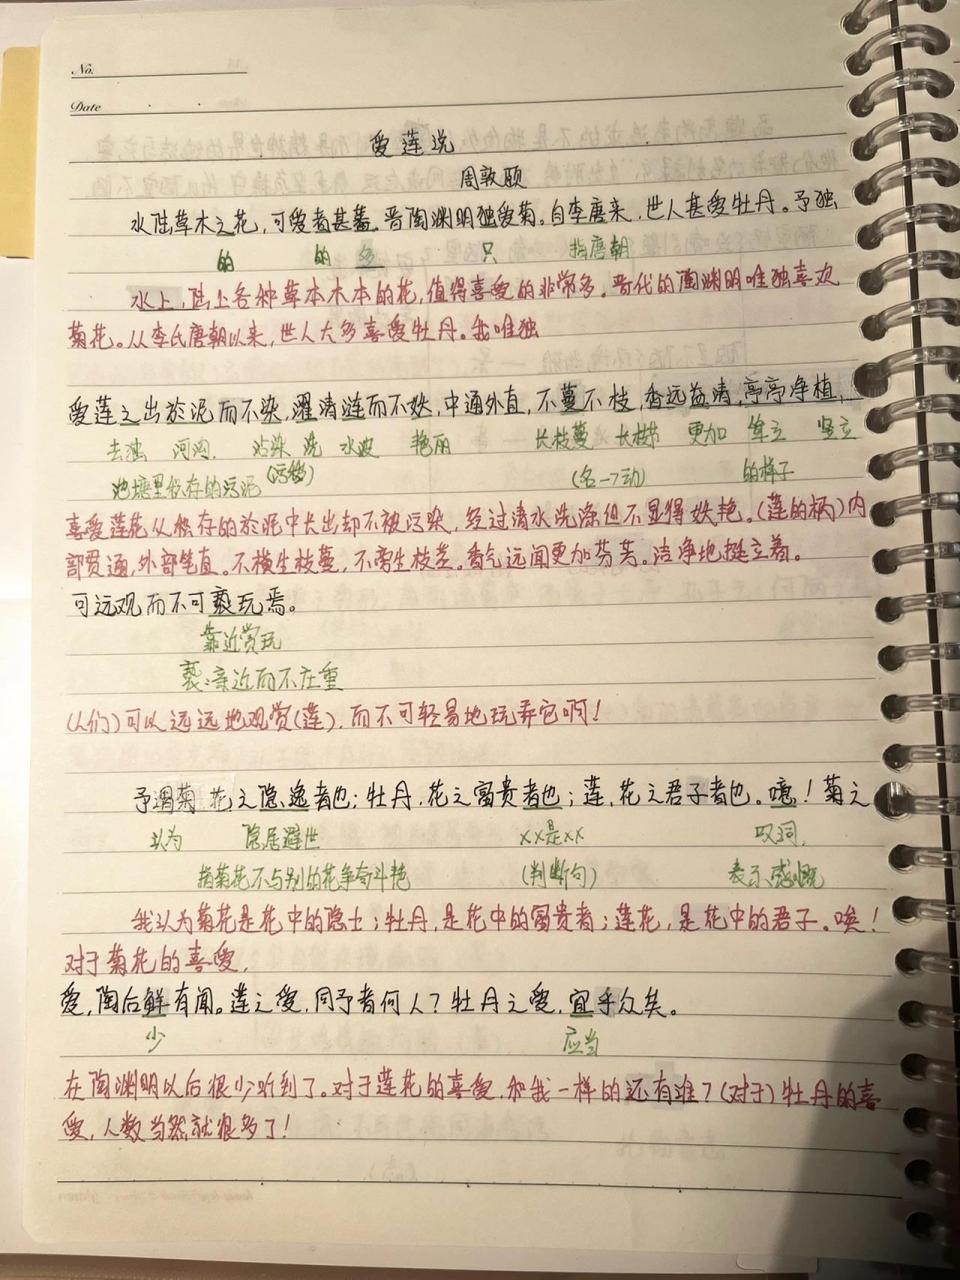 No.
Date
爱莲说
周敦颐
水陆草木之花，可爱者甚蕃。晋陶渊明独爱菊。自李唐来，世人甚爱牡丹。予独
的 的 多 只 指唐朝
水上，陆上各种草本木本的花，值得喜爱的非常多。晋代的陶渊明唯独喜欢
菊花。从李氏唐朝以来，世人大多喜爱牡丹。我唯独
爱莲之出於泥而不染，濯清涟而不妖，中通外直，不蔓不枝，香远益清，亭亭净植，
河沟. 沾染 洗 水波 艳丽 长枝蔓 长枝节 更加 耸立 竖立
池塘里积存的污泥 (污秽) (名→动) 的样子
喜爱莲花从积存的於泥中长出却不被污染，经过清水洗涤但不显得妖艳。(莲的柄)内
部贯通，外部笔直。不横生枝蔓，不旁生枝茎。香气远闻更加芬芳。洁净地挺立着。
可远观而不可亵玩焉。
靠近赏玩
亵：亲近而不庄重
(人们)可以远远地观赏(莲)，而不可轻易地玩弄它啊！
予谓菊 花之隐逸者也；牡丹，花之富贵者也；莲，花之君子者也。噫！菊之
认为 隐居避世 xx是xx 叹词，
指菊花不与别的花争奇斗艳 (判断句) 表示感慨
我认为菊花是花中的隐士；牡丹，是花中的富贵者；莲花，是花中的君子。唉！
对于菊花的喜爱，
爱，陶后鲜有闻。莲之爱，同予者何人？牡丹之爱，宜乎众矣。
少 应当
在陶渊明以后很少听到了。对于莲花的喜爱，和我一样的还有谁？(对于)牡丹的喜
爱，人数当然就很多了！